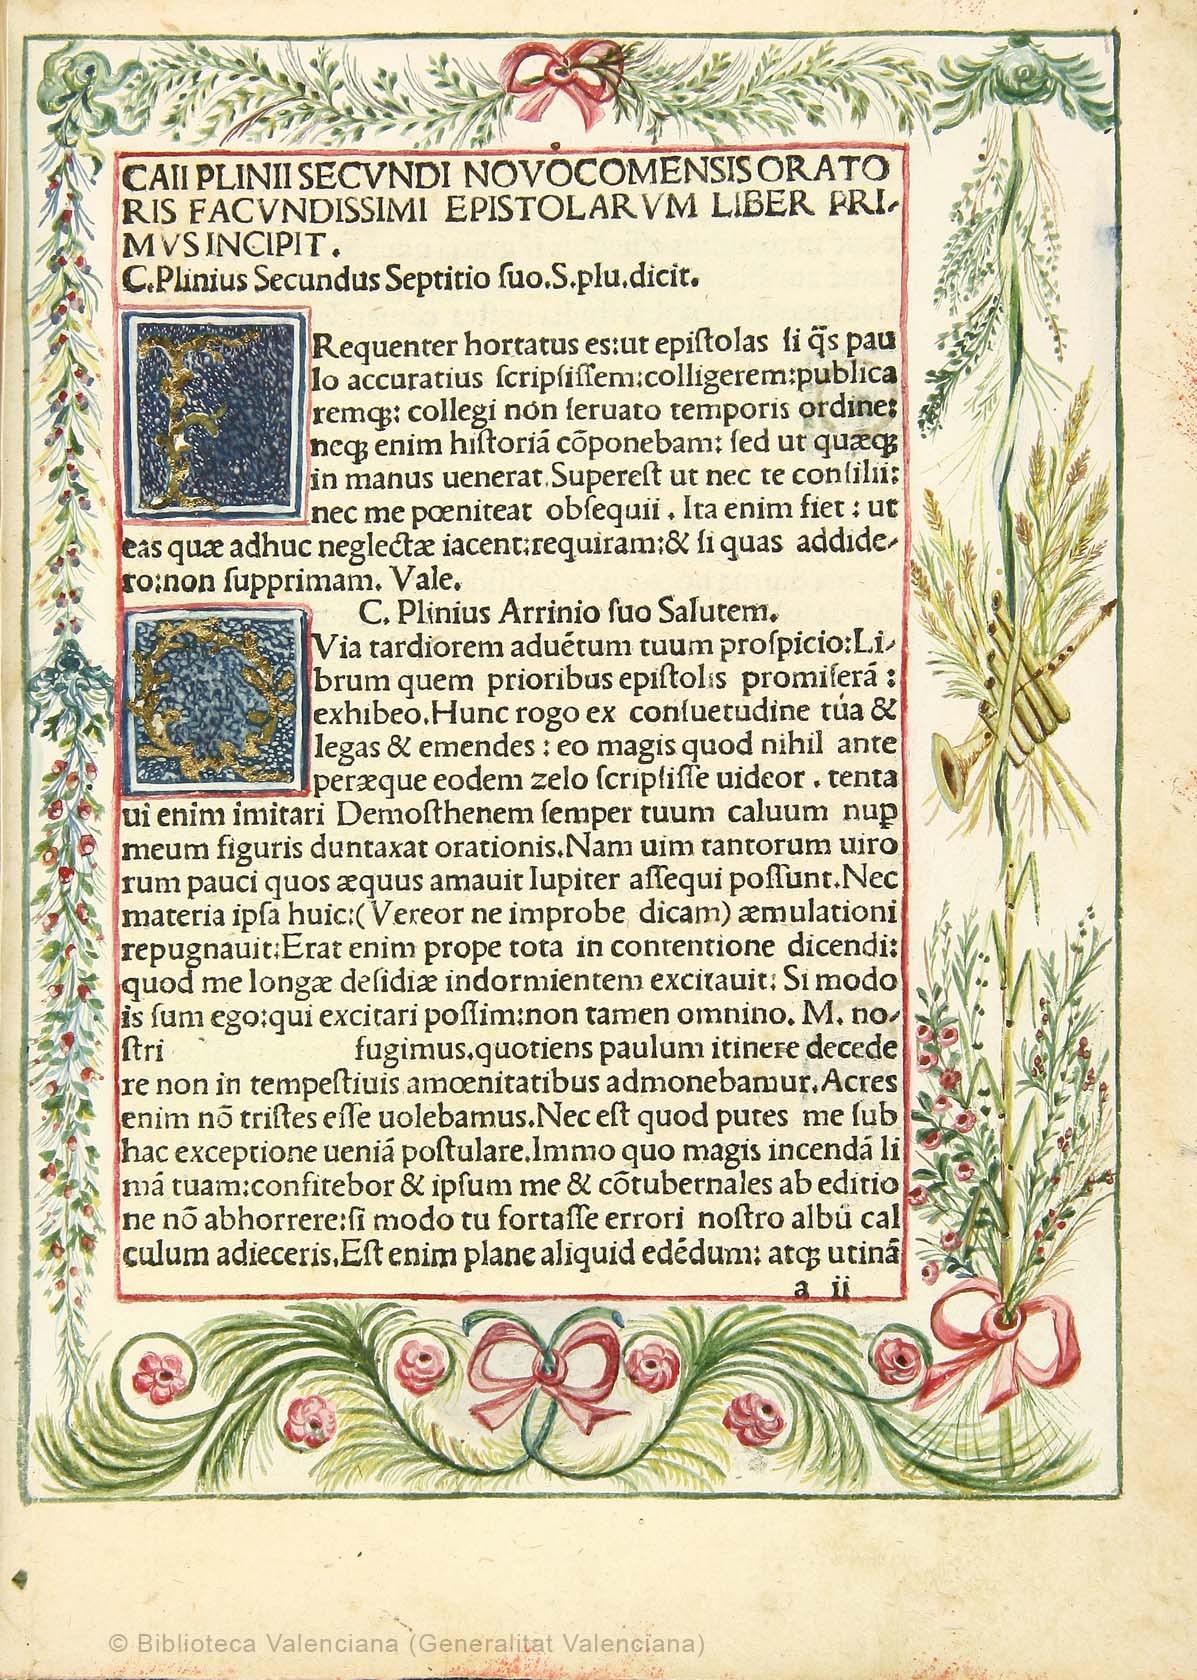 CAII PLINII SECVNDI NOVOCOMENSIS ORATO
RIS FACVNDISSIMI EPISTOLARVM LIBER PRI-
MVS INCIPIT.
C.Plinius Secundus Septitio ſuo.S.plu.dicit.
FRequenter hortatus es:ut epiſtolas ſi q̃s pau
lo accuratius ſcripſiſſem:colligerem:publica
remqꝫ: collegi non ſeruato temporis ordine:
neqꝫ enim hiſtoriã cõponebam: ſed ut quæqꝫ
in manus uenerat.Supereſt ut nec te conſilii:
nec me pœniteat obſequii. Ita enim fiet: ut
eas quæ adhuc neglectæ iacent:requiram:& ſi quas addide-
ro:non ſupprimam. Vale.
C. Plinius Arrinio ſuo Salutem.
QVia tardiorem aduẽtum tuum proſpicio:Li-
brum quem prioribus epiſtolis promiſerã:
exhibeo.Hunc rogo ex conſuetudine tua &
legas & emendes: eo magis quod nihil ante
peræque eodem zelo ſcripſiſſe uideor. tenta
ui enim imitari Demoſthenem ſemper tuum caluum nuꝑ
meum figuris duntaxat orationis.Nam uim tantorum uiro
rum pauci quos æquus amauit Iupiter aſſequi poſſunt.Nec
materia ipſa huic:(Vereor ne improbe dicam) æmulationi
repugnauit:Erat enim prope tota in contentione dicendi:
quod me longæ deſidiæ indormientem excitauit: Si modo
is ſum ego:qui excitari poſſim:non tamen omnino. M. no-
ſtri fugimus.quotiens paulum itinere decede
re non in tempeſtiuis amœnitatibus admonebamur.Acres
enim nõ triſtes eſſe uolebamus.Nec eſt quod putes me ſub
hac exceptione ueniã poſtulare.Immo quo magis incendã li
mã tuam:confitebor & ipſum me & cõtubernales ab editio
ne nõ abhorrere:ſi modo tu fortaſſe errori noſtro albũ cal
culum adieceris.Eſt enim plane aliquid edẽdum: atqꝫ utinã
a ii
© Biblioteca Valenciana (Generalitat Valenciana)